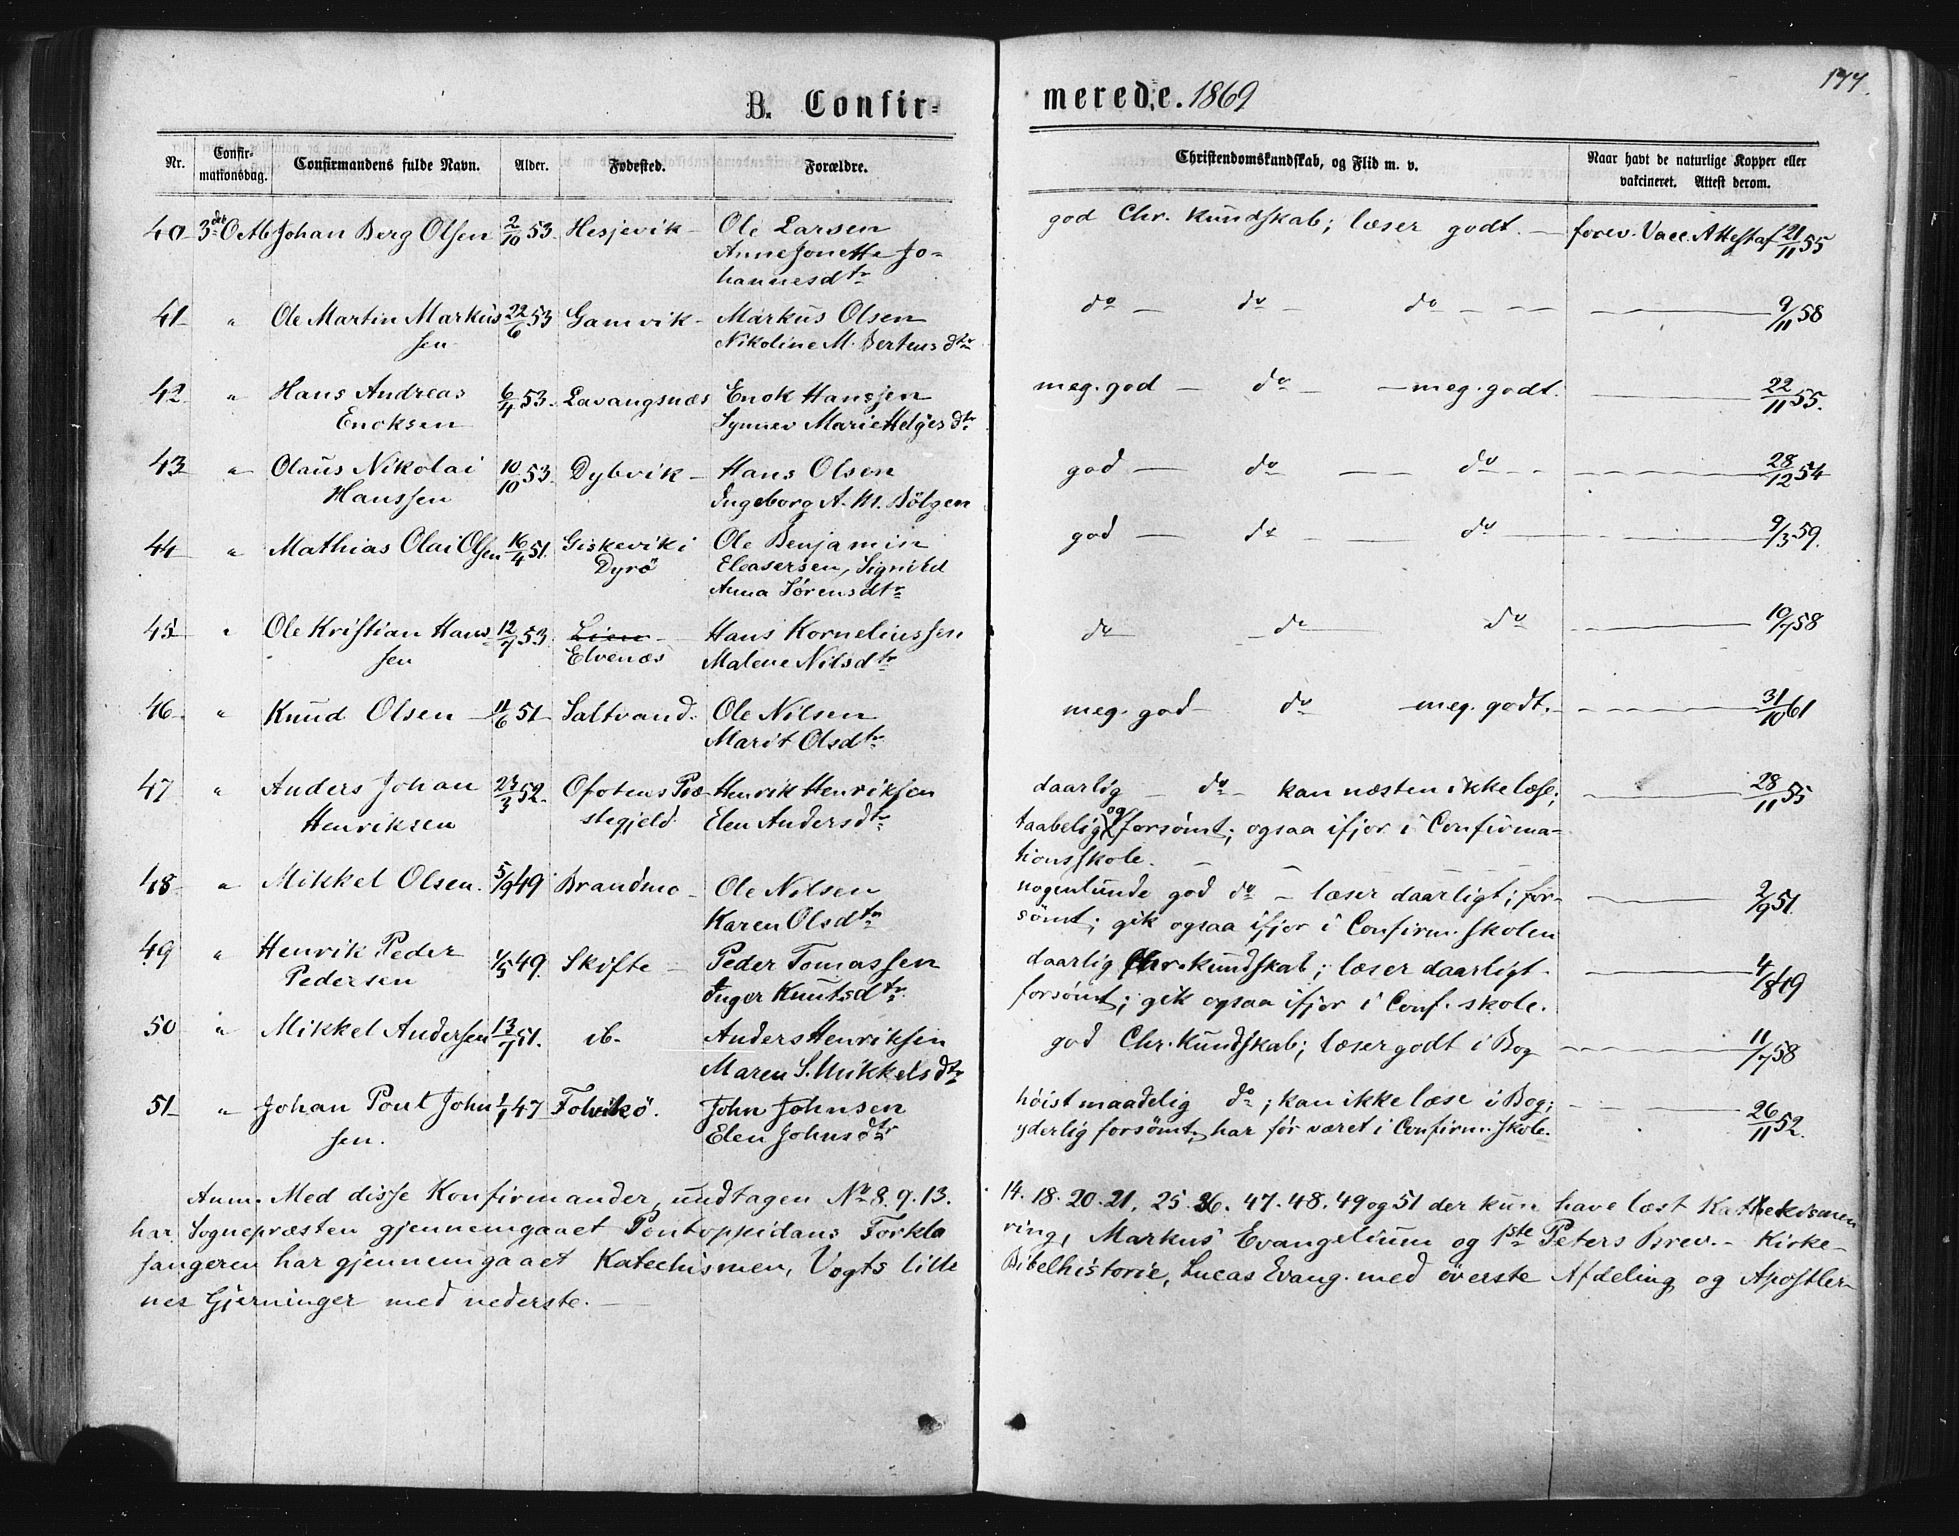 177.
B. Confir-
merede. 1869
Nr. Confir-mationsdag. Confirmandens fulde Navn. Alder. Fødested. Forældre. Christendomskundskab, og Flid m. v. Naar havt de naturlige Kopper eller vakcineret. Attest derom.
40 3die Octb Johan Berg Olsen 2/10 53. Hesjevik - Ole Larsen god Chr. Kundskab; læser godt. - forev. Vacc. Attest af 21/11 55
Anne Jonetta Jo-
hannesdtr
41 " Ole Martin Markus 22/6 53 Gamvik - Markus Olsen do - do - do - - 9/11 58
sen Nikoline M. Berteusdtr
42 " Hans Andreas 6/4 53. Lavangsnæs Enok Hanssen meg. god - do - - meg. godt. 22/11 55.
Enoksen Synnev Marie Helgesdtr
43 " Olaus Nikolai 10/10 53. Dybvik - Hans Olsen god - do - do 28/12 54
Hanssen Ingeborg A. M. Bölgen
44 " Mathias Olai Olsen 16/4 51. Giskevik i Ole Benjamin god - do - do 9/3 59.
Dyrö Eleasersen, Signild
Anna Sørensdtr
45 " Ole Kristian Hans 12/7 53. Lien - Hans Korneliussen do - do do 10/7 58
sen Elvenæs Malene Nilsdtr
46 " Knud Olsen - 11/6 51 - Saltvand. Ole Nilsen meg. god - do - meg. godt. - 31/10 61
Marit Olsdtr
47 " Anders Johan 23/3 52. Ofotens Præ- Henrik Henriksen daarlig - do - kan næsten ikke læse; 28/11 55
Henriksen stegjeld Elen Andersdtr taabelig og forsömt; ogsaa ifjor i Confirma-
tionsskole.
48 " Mikkel Olsen. 5/9 49 Brandmo - Ole Nilsen nogenlunde god do - læser daarligt; for- 2/9 51.
Karen Olsdtr sömt; gik ogsaa ifjor i Confirm. skolen
49 " Henrik Peder 4/5 49. Sköfte - Peder Tomassen daarlig Chr. Kundskab; læser daarligt - 4/8 49
Pedersen Inger Knutsdtr. forsömt; gik ogsaa ifjor i Conf. skole.
50 " Mikkel Andersen 13/7 51. ib. Anders Henriksen god Chr. Kundskab; læser godt i Bog 11/7 58
Maren S. Mikkelsdtr
51 " Johan Pont John 1/1 47 John Johnsen höist maadelig do; kan ikke læse i Bog; 26/11 52.
sen. Elen Johnsdtr yderlig forsömt, har för været i Confirm. skole.
Anm. Med disse Konfirmander, undtagen No 8. 9. 13. 14. 18. 20. 21. 25. 36. 47. 48. 49 og 51 der kun have læst Kathekismen
har Sognepræsten gjennemgaaet Pontoppidans Forkla ring, Markus' Evangelium og 1ste Peters Brev. - Kirke-
sangeren har gjennemgaaet Katechismen, Vogts lille Bibelhistorie, Lucas Evang. med överste Afdeling og Apostler-
nes Gjerninger med nederste. -